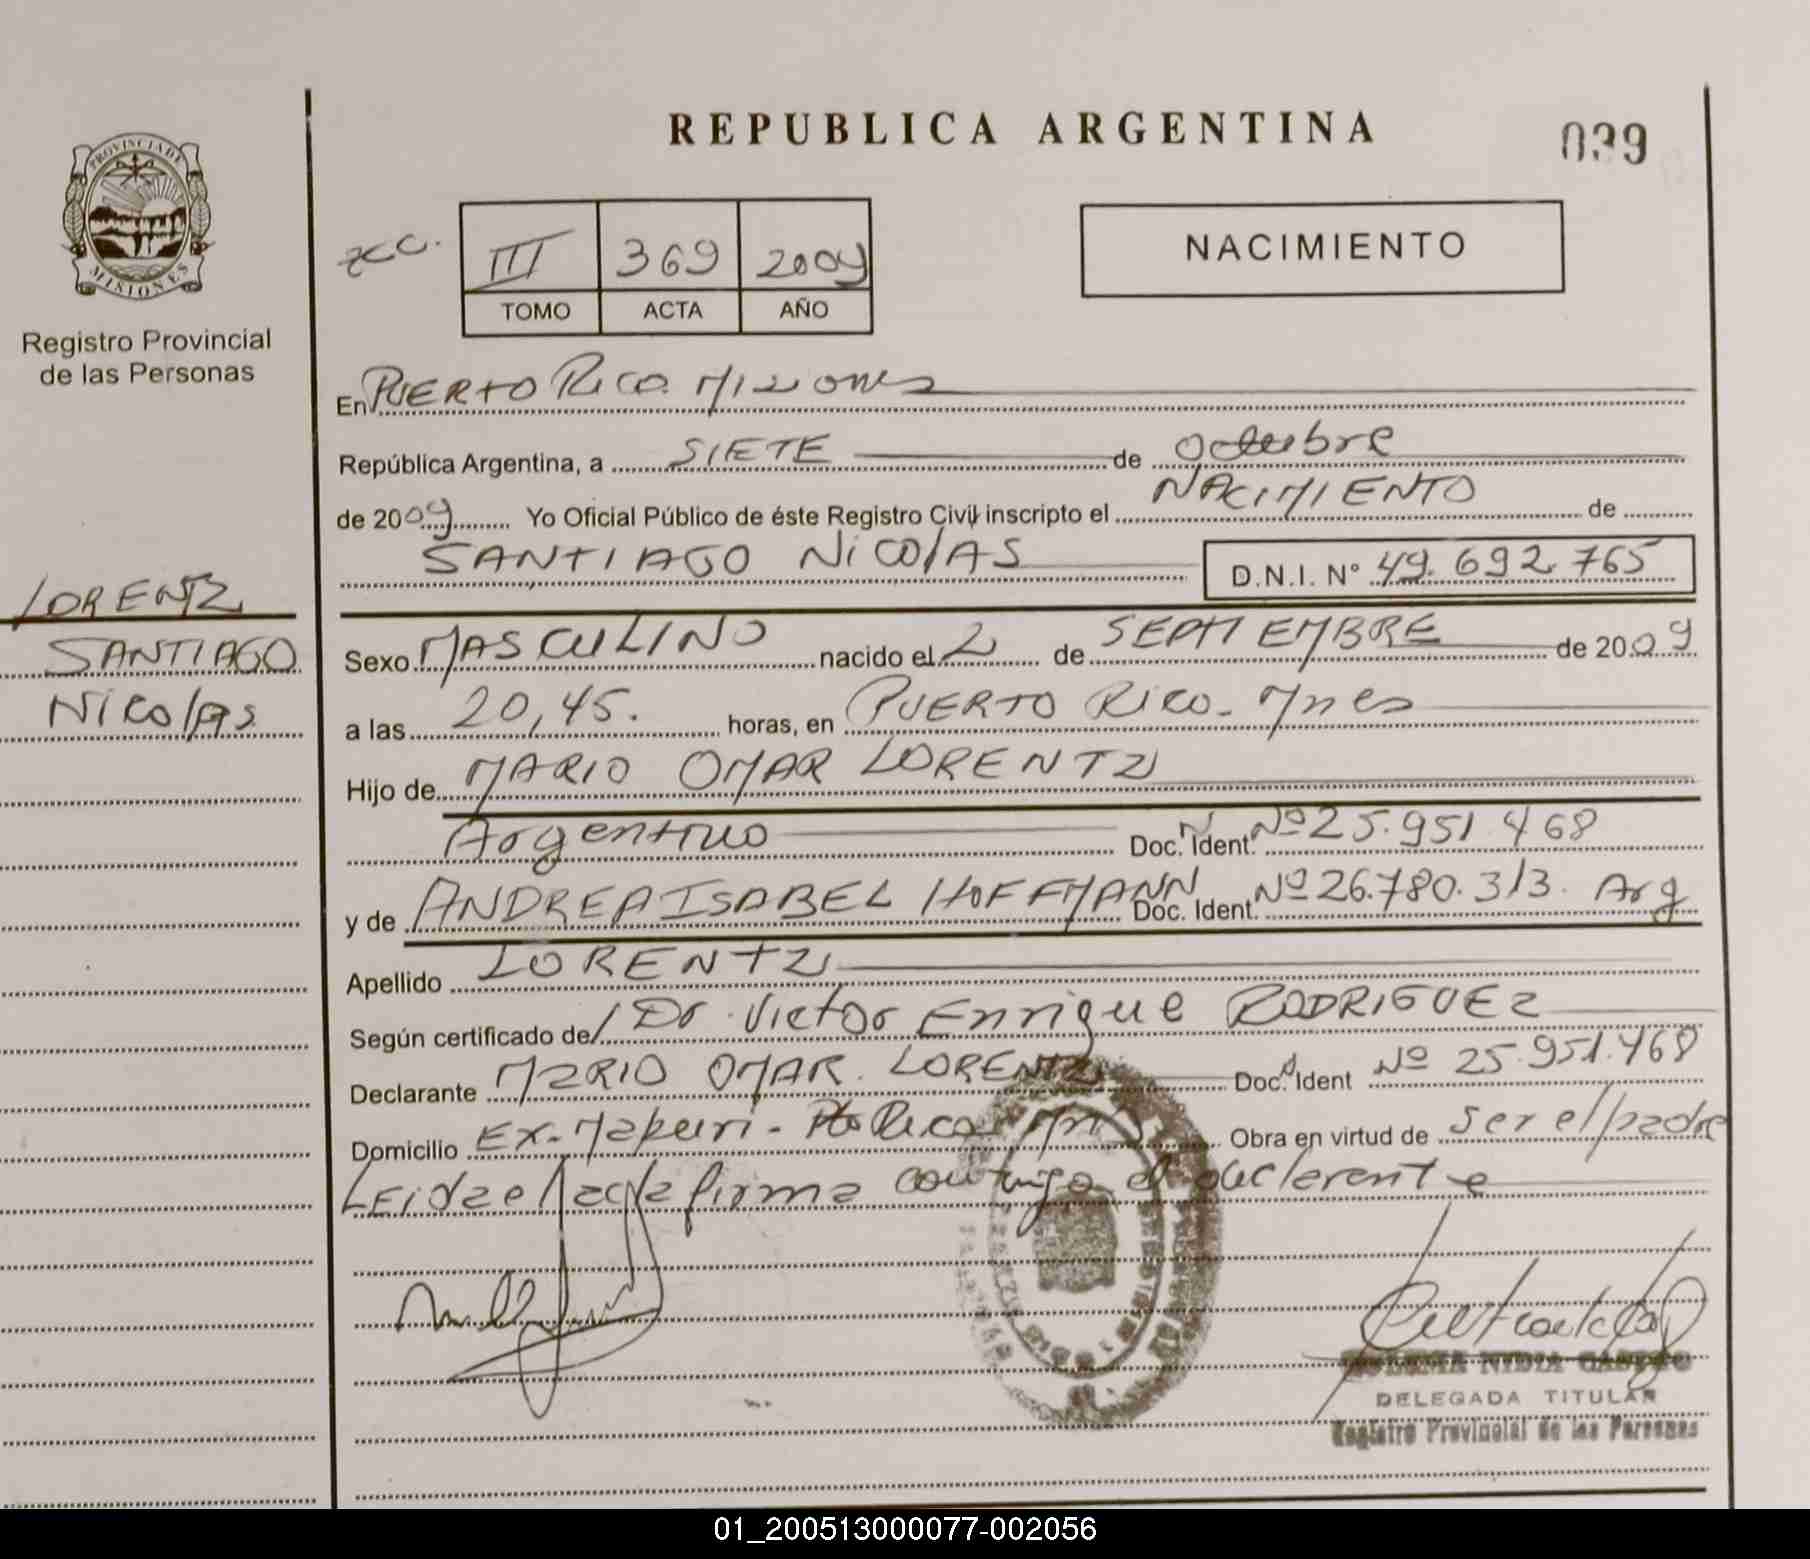 REPUBLICA ARGENTINA
039
PROVINCIA DE
MISIONES
Registro Provincial
de las Personas
III 369 2009
TOMO ACTA AÑO
NACIMIENTO
En PUERTO RICO. Misiones
República Argentina, a SIETE de octubre
de 2009 Yo Oficial Público de éste Registro Civil inscripto el NACIMIENTO de
SANTIAGO NicolAS D.N.I. N° 49.692.765
LORENTZ
SANTIAGO
Nicolas
Sexo MASCULINO nacido el 2 de SEPTIEMBRE de 2009
a las 20,45. horas, en PUERTO RICO - Mnes
Hijo de MARIO OMAR LORENTZ
Argentino Doc. N Ident. Nº 25.951.468
y de ANDREA ISABEL HOFFMANN Doc. Ident. Nº 26.780.313. Arg
Apellido LORENTZ
Según certificado de/ Dr. Victor Enrique RODRIGUEZ
Declarante MARIO OMAR. LORENTZ Doc. d Ident Nº 25.951.468
Domicilio Ex-Mapuri - Pto Rico Mns Obra en virtud de ser el padre
LEida el acta firma conmigo el declarante
DELEGADA TITULAR
Registro Provincial de las Personas
01_200513000077-002056